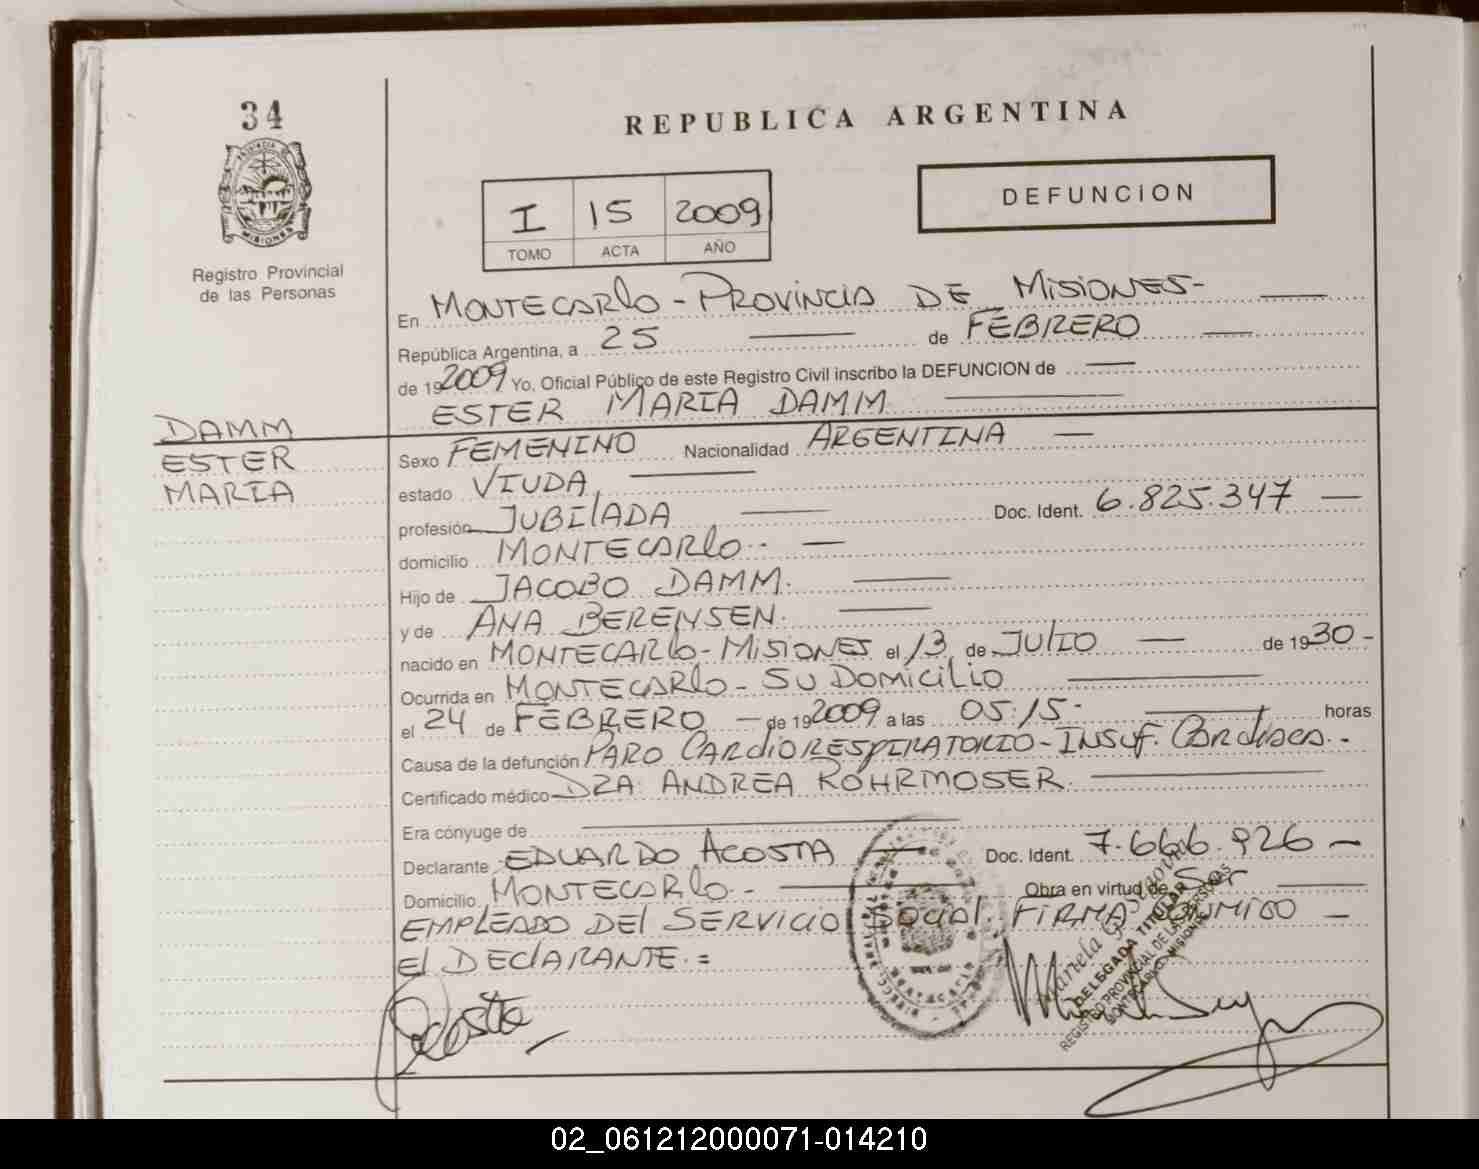 34
PROVINCIA DE
MISIONES
Registro Provincial
de las Personas
REPUBLICA ARGENTINA
I 15 2009
TOMO ACTA AÑO
DEFUNCION
En MONTECARLO - PROVINCIA DE MISIONES -
República Argentina, a 25 de FEBRERO
de 192009 Yo, Oficial Público de este Registro Civil inscribo la DEFUNCION de
ESTER MARIA DAMM
DAMM
ESTER
MARIA
Sexo FEMENINO Nacionalidad ARGENTINA
estado VIUDA
profesión JUBILADA Doc. Ident. 6.825.347
domicilio MONTECARLO -
Hijo de JACOBO DAMM.
y de ANA BERENSEN.
nacido en MONTECARLO - MISIONES el 13 de JULIO de 1930 -
Ocurrida en MONTECARLO - SU DOMICILIO
el 24 de FEBRERO de 192009 a las 05:15 horas
Causa de la defunción PARO CARDIORESPIRATORIO - INSUF. CARDIACA. -
Certificado médico DRA. ANDREA ROHRMOSER.
Era cónyuge de
Declarante EDUARDO ACOSTA Doc. Ident. 7.666.926
Domicilio MONTECARLO - Obra en virtud de Ser
EMPLEADO DEL SERVICIO SOCIAL. FIRMA CONMIGO
El DECLARANTE. =
Acosta
DELEGADA TITULAR
REGISTRO PROVINCIAL DE LAS PERSONAS
MONTECARLO - MISIONES
02_061212000071-014210